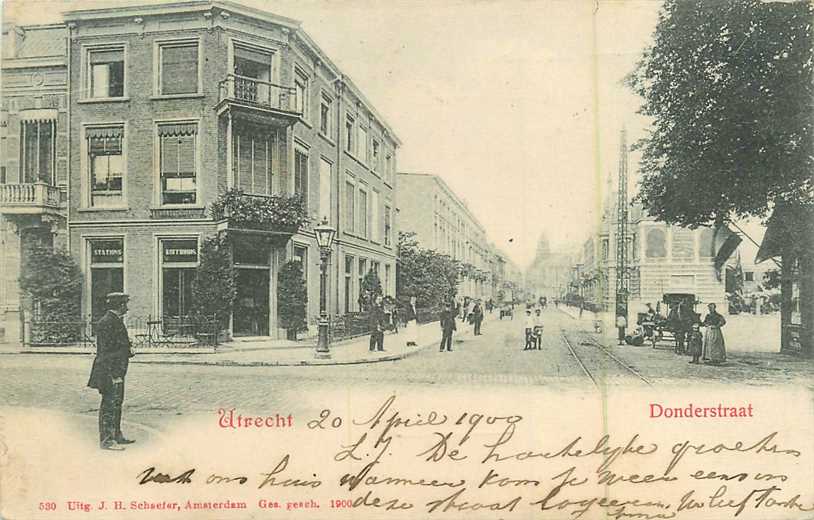 STATIONS KOFFIEHUIS
Utrecht
Donderstraat
20 April 1900
L. J. De hartelijke groeten
uit ons huis wanneer kom je weer eens in
deze straat logeeren. Je liefh. tante
530 Uitg. J. H. Schaefer, Amsterdam Ges. gesch. 1900